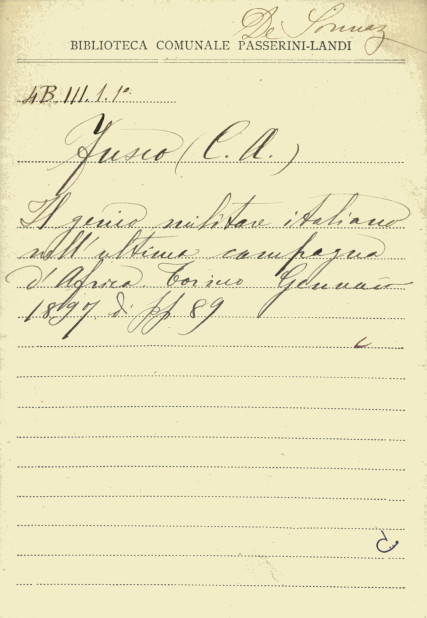 De Sonnaz
BIBLIOTECA COMUNALE PASSERINI-LANDI
4B III. 1. 1º.
Fusco (C. A.)
Il genio militare italiano
nell'ultima campagna
d'Africa. Torino Gennaio
1897 di pp 89